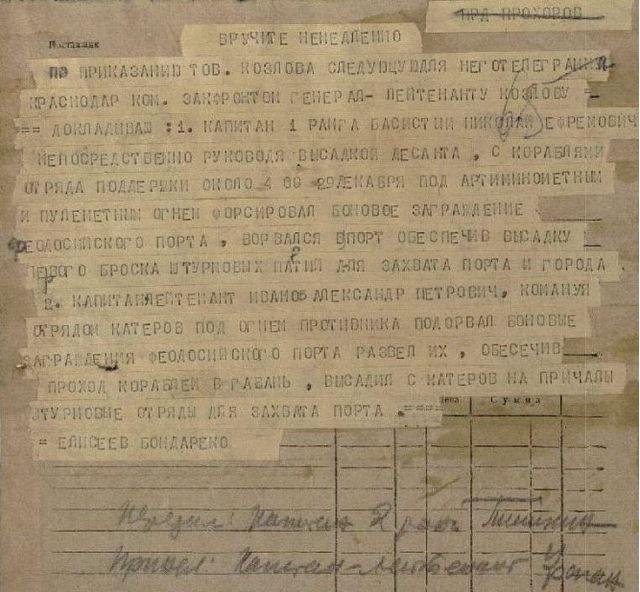 ПРД ПРОХОРОВ
Поставщик
ВРУЧИТЕ НЕМЕДЛЕННО
ПО ПРИКАЗАНИЮ ТОВ. КОЗЛОВА СЛЕДУЮЩУЮДЛЯ НЕГОТЕЛЕГРАММА
КРАСНОДАР КОМ. ЗАКФРОНТОМ ГЕНЕРАЛ- ЛЕЙТЕНАНТУ КОЗЛОВУ =
== ДОКЛАДЫВАЮ :1. КАПИТАН 1 РАНГА БАСИСТЫЙ НИКОЛАЙ ЕФРЕМОВИЧ
НЕПОСРЕДСТВЕННО РУКОВОДЯ ВЫСАДКОЙ ДЕСАНТА , С КОРАБЛЯМИ
ОТРЯДА ПОДДЕРЖКИ ОКОЛО 4 00 29ДЕКАБРЯ ПОД АРТИМИНОМЕТНЫМ
И ПУЛЕМЕТНЫМ ОГНЕМ ФОРСИРОВАЛ БОНОВОЕ ЗАГРАЖДЕНИЕ
ФЕОДОСИЙСКОГО ПОРТА , ВОРВАЛСЯ ВПОРТ ОБЕСПЕЧИВ ВЫСАДКУ
ПЕРВОГО БРОСКА ШТУРМОВЫХ ПАТИЙ ДЛЯ ЗАХВАТА ПОРТА И ГОРОДА .
2. КАПИТАНЛЕЙТЕНАНТ ИВАНОВ АЛЕКСАНДР ПЕТРОВИЧ, КОМАНУЯ
ОТРЯДОМ КАТЕРОВ ПОД ОГНЕМ ПРОТИВНИКА ПОДОРВАЛ БОНОВЫЕ
ЗАГРАЖДЕНИЯ ФЕОДОСИЙСКОГО ПОРТА РАЗВЕЛ ИХ , ОБЕСЕЧИВ
ПРОХОД КОРАБЛЕЙ В ГАВАНЬ , ВЫСАДИЛ С КАТЕРОВ НА ПРИЧАЛЫ
ШТУРМОВЫЕ ОТРЯДЫ ДЛЯ ЗАХВАТА ПОРТА .===
Сумма
= ЕЛИСЕЕВ БОНДАРЕКО
Капитан 2 ранг
Принял: Капитан-лейтенант